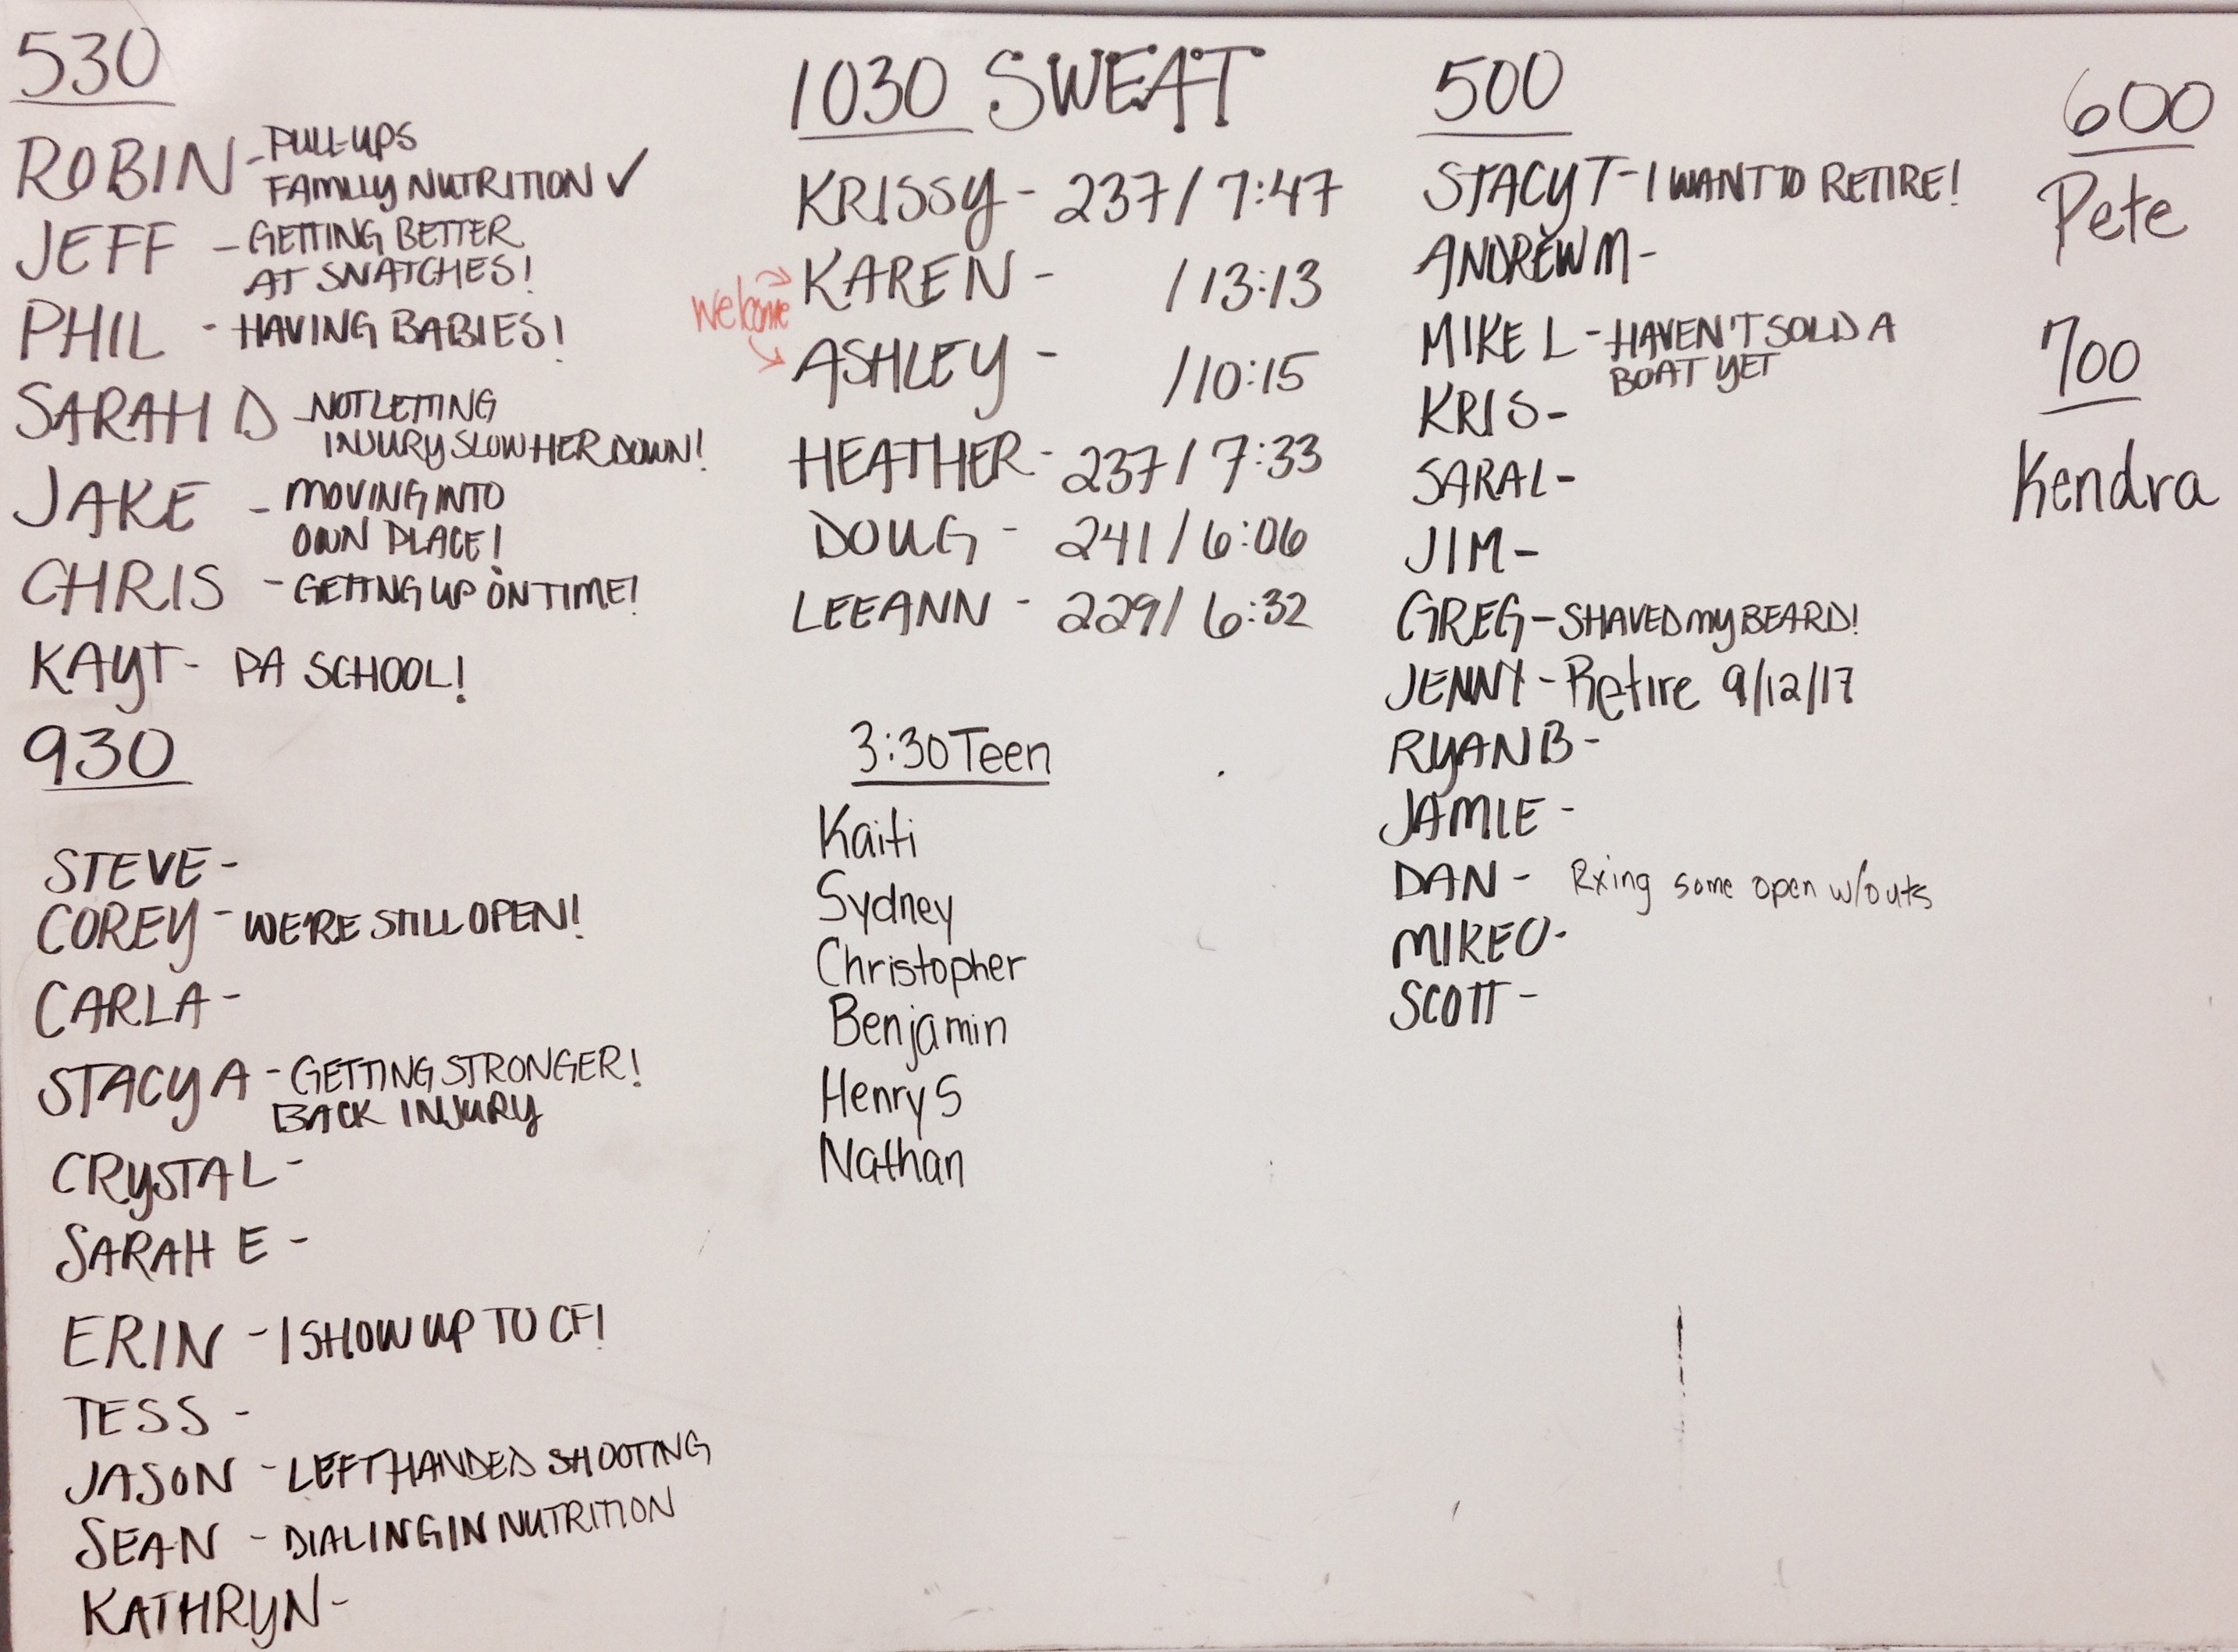 530
ROBIN - PULL-UPS
FAMILY NUTRITION ✓
JEFF - GETTING BETTER
AT SNATCHES!
PHIL - HAVING BABIES!
SARAH D - NOT LETTING
INJURY SLOW HER DOWN!
JAKE - MOVING INTO
OWN PLACE!
CHRIS - GETTING UP ON TIME!
KAYT - PA SCHOOL!
930
STEVE -
COREY - WE'RE STILL OPEN!
CARLA -
STACY A - GETTING STRONGER!
BACK INJURY
CRYSTAL -
SARAH E -
ERIN - I SHOW UP TO CF!
TESS -
JASON - LEFT HANDED SHOOTING
SEAN - DIALING IN NUTRITION
KATHRYN -
1030 SWEAT
KRISSY - 237 / 7:47
welcome
KAREN - / 13:13
ASHLEY - / 10:15
HEATHER - 237 / 7:33
DOUG - 241 / 6:06
LEEANN - 229 / 6:32
3:30 Teen
Kaiti
Sydney
Christopher
Benjamin
Henry S
Nathan
500
STACY T - I WANT TO RETIRE!
ANDREW M -
MIKE L - HAVEN'T SOLD A
BOAT YET
KRIS -
SARA L -
JIM -
GREG - SHAVED MY BEARD!
JENNY - Retire 9/12/17
RYAN B -
JAMIE -
DAN - Rxing some open w/outs
MIKE O -
SCOTT -
600
Pete
700
Kendra